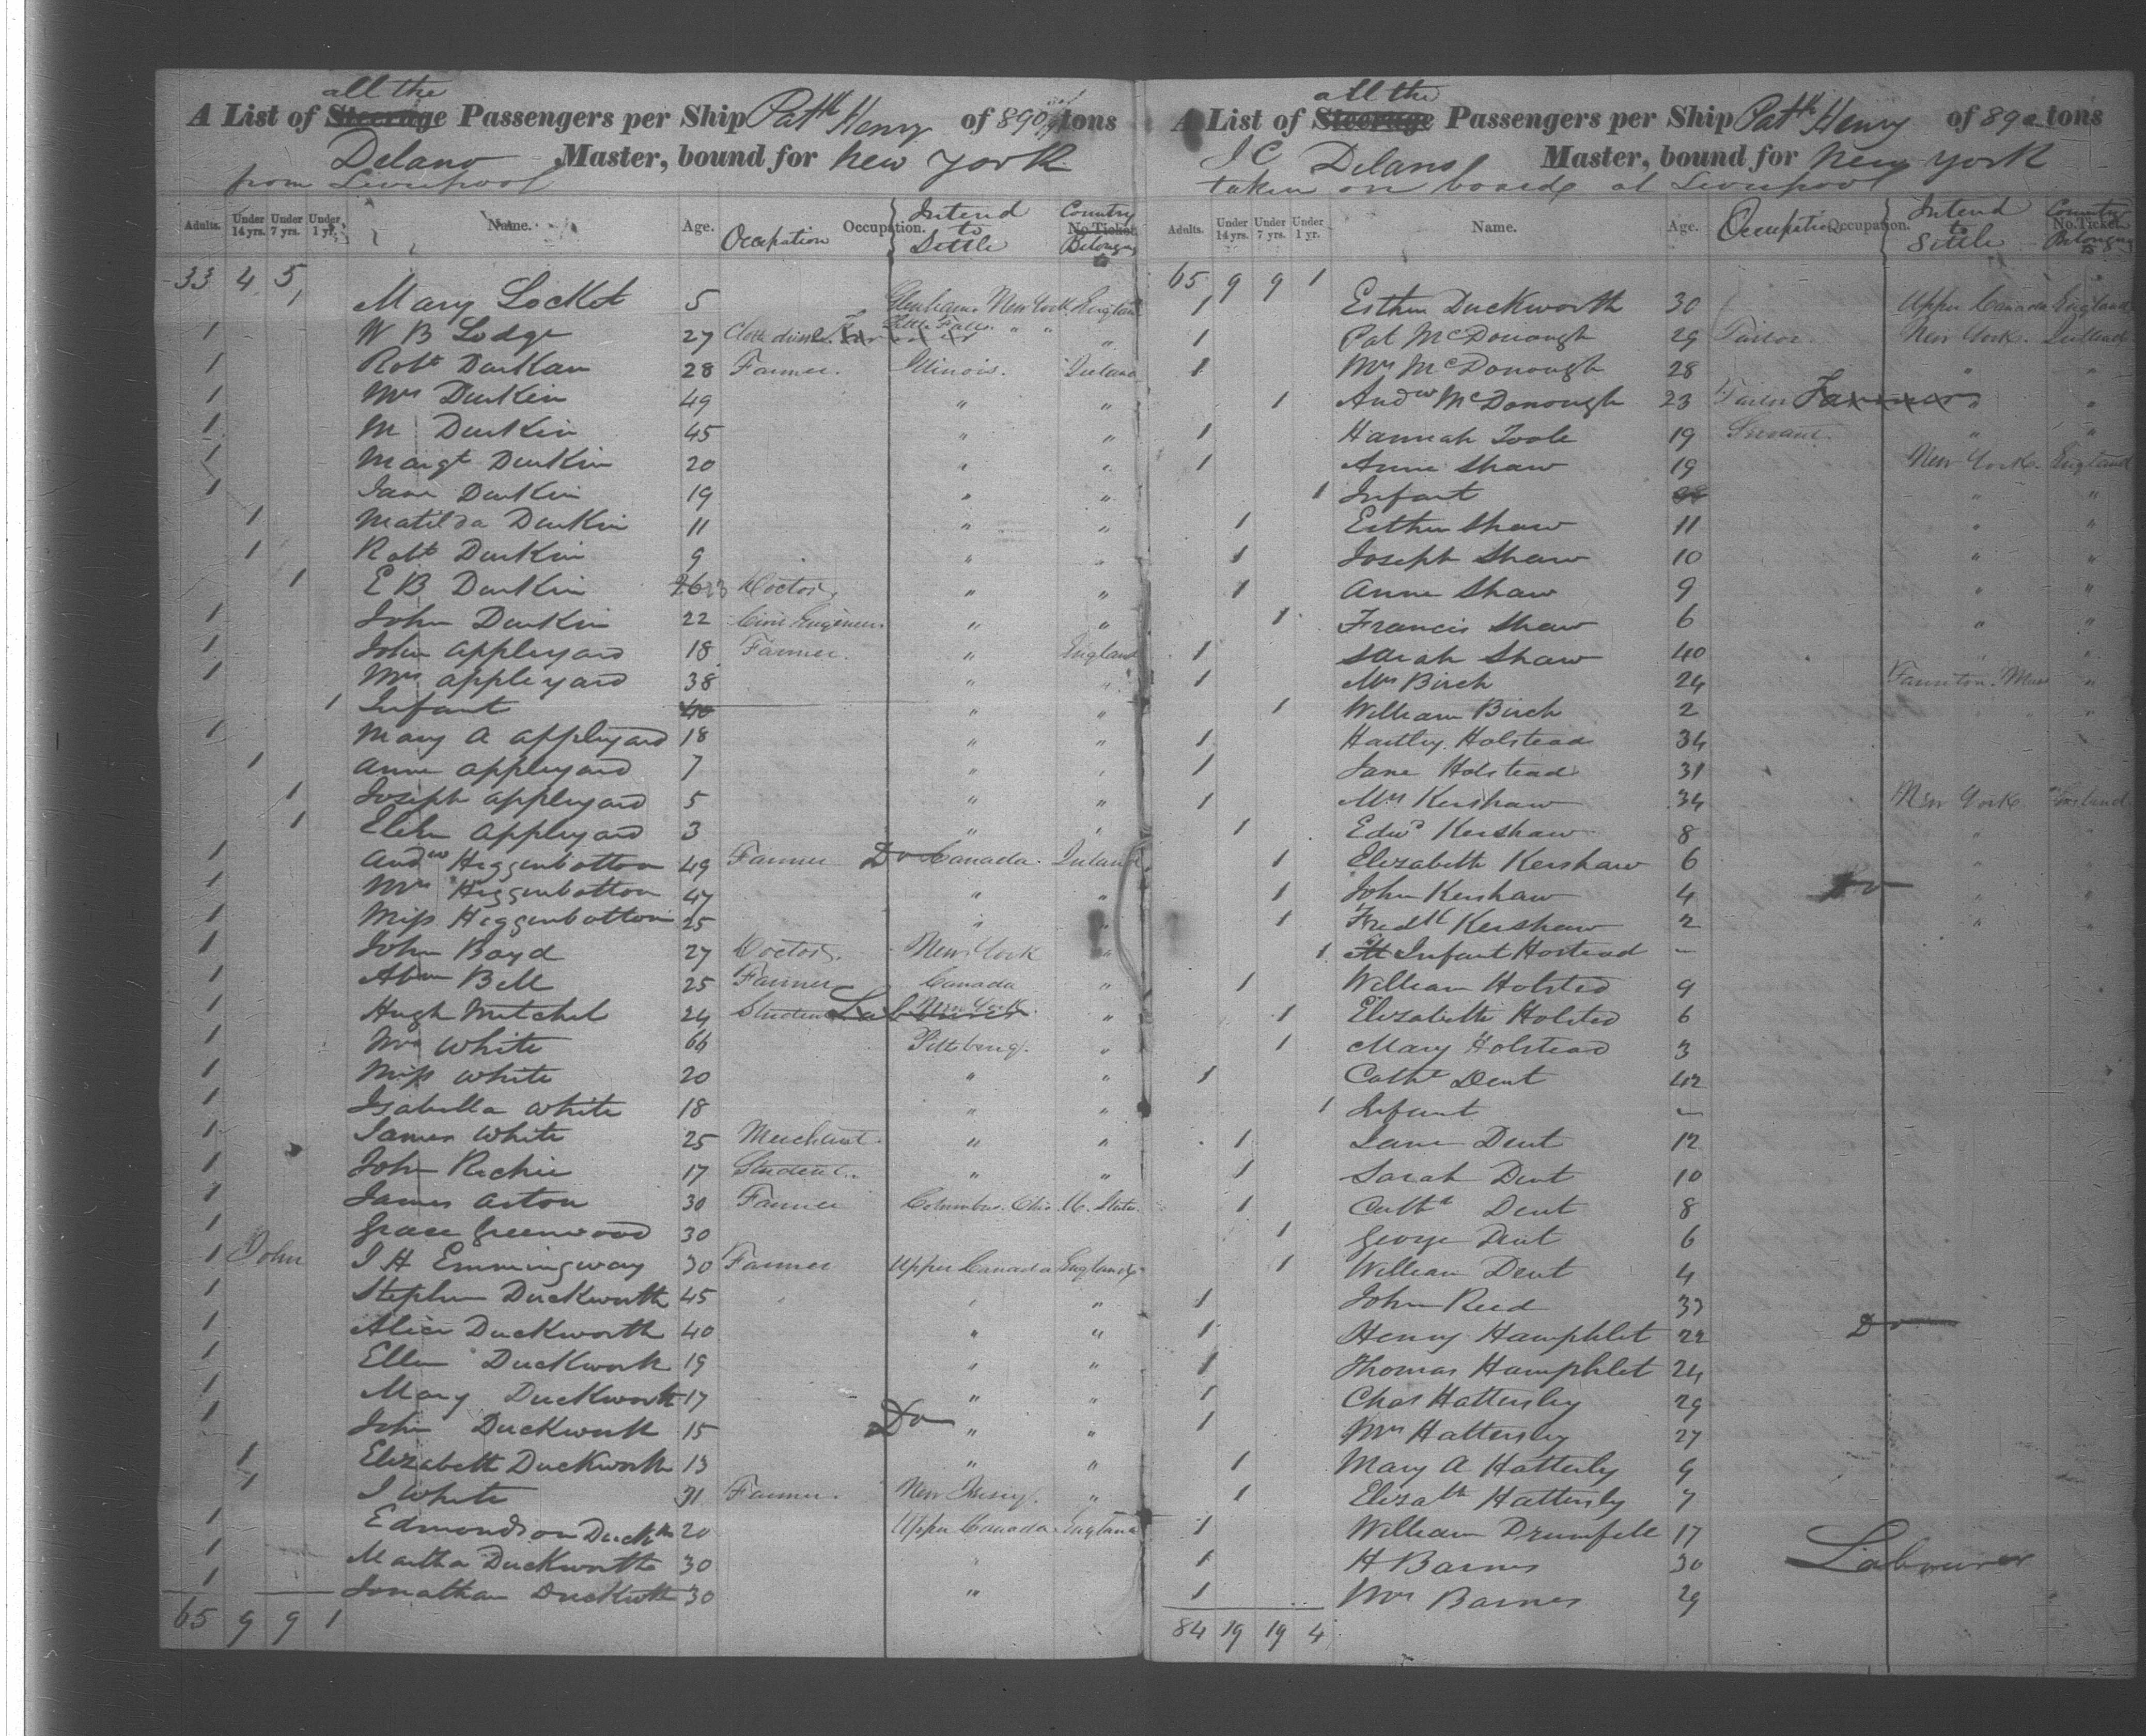 all the
A List of Steerage Passengers per Ship Path Henry of 890 tons
Delano Master, bound for New York
from Liverpool
Adults. Under 14 yrs. Under 7 yrs. Under 1 yr. Name. Age. Occupation Occupation. Intend to Settle Country No. Ticket. Belongs to
33 4 5
1 Mary Locket 5 New York England
1 W B Lodge 27 Little Falls " " "
1 Robt Durkan 28 Farmer. Illinois. Ireland
1 Mrs Durkin 49 " "
1 M Durkin 45 " "
1 Margt Durkin 20 " "
1 Jane Durkin 19 " "
1 Matilda Durkin 11 " "
1 Robt Durkin 9 " "
1 E B Durkin 26 23 Doctor. " "
1 John Durkin 22 Civil Engineer " "
1 John Appleyard 18 Farmer. " England
1 Mrs Appleyard 38 " "
1 Infant 40 " "
1 Mary A Appleyard 18 " "
1 Anne Appleyard 7 " "
1 Joseph Appleyard 5 " "
1 Appleyard 3 " "
1 Andw Higgenbotton 49 Farmer Do Canada. Ireland
1 Mrs Higgenbotton 47 " "
1 Miss Higgenbotton 25 " "
1 John Boyd 27 Doctor. New York "
1 Abm Bell 25 Farmer Canada "
1 Hugh Mitchel 24 Student Labourer New York "
1 Mrs White 66 Pittsburg. "
1 Miss White 20 " "
1 Isabella White 18 " "
1 James White 25 Merchant. " "
1 John Richie 17 Student. " "
1 James Aston 30 Farmer Columbus. Ohio U. States
1 Grace Greenwood 30
1 John J H Emmingway 30 Farmer Upper Canada England
1 Stephen Duckworth 45 " "
1 Alice Duckworth 40 " "
1 Ellen Duckworth 19 " "
1 Mary Duckworth 17 " "
1 John Duckworth 15 Do " "
1 Elizabeth Duckworth 13 " "
1 J White 31 Farmer. New Jersey. "
1 Edmondson Duckth 20 Upper Canada England
1 Martha Duckworth 30 "
1 Jonathan Duckwth 30 "
65 9 9 1
all the
A List of Steerage Passengers per Ship Path Henry of 890 tons
J C Delano Master, bound for New York
taken on board at Liverpool
Adults. Under 14 yrs. Under 7 yrs. Under 1 yr. Name. Age. Occupation Occupation. Intend to Settle Country No. Ticket. Belongs to
65 9 9 1
1 Esther Duckworth 30 Upper Canada England
1 Pat McDonough 29 Tailor New York. Ireland
1 Mrs McDonough 28 " "
1 Andw McDonough 23 Tailor Farmer " "
1 Hannah Toole 19 Servant. " "
1 Anne Shaw 19 New York. England
1 Infant " "
1 Esther Shaw 11 " "
1 Joseph Shaw 10 " "
1 Anne Shaw 9 " "
1 Francis Shaw 6 " "
1 Sarah Shaw 40 " "
1 Mrs Birch 24 Mass "
1 William Birch 2 " "
1 Hartley Holstead 34
1 Jane Holstead 31
1 Mrs Kershaw 34 New York England
1 Edwd Kershaw 8 " "
1 Elizabeth Kershaw 6 " "
1 John Kershaw 4 Do " "
1 Fredk Kershaw 2 " "
1 Infant Hostead –
1 William Holsted 9
1 Elizabeth Holsted 6
1 Mary Holstead 3
1 Cathe Dent 42
1 Infant –
1 Jane Dent 12
1 Sarah Dent 10
1 Cathe Dent 8
1 George Dent 6
1 William Dent 4
1 John Reed 33
1 Henry Hamphlet 22 Do
1 Thomas Hamphlet 24
1 Chas Hattersley 29
1 Mrs Hattersley 27
1 Mary A Hatterly 9
1 Elizath Hattersly 7
1 William Drumfell 17
1 H Barnes 30 Labourer
1 Mrs Barnes 29
84 19 19 4